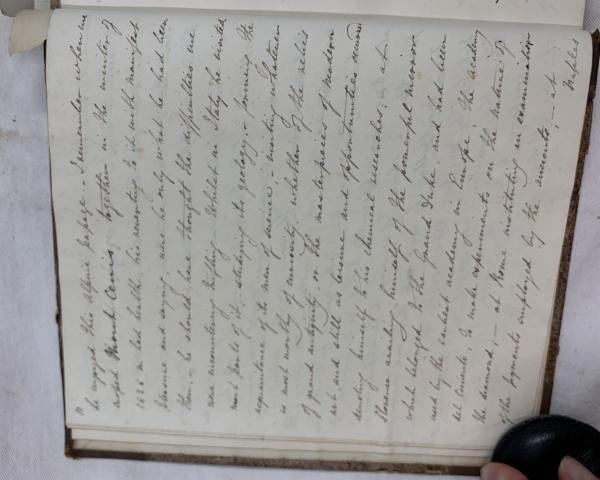 he enjoyed this Alpine passage. I remember when we
crossed Mount Cenis together in the winter of
1826 in bad health, his reverting to it with manifest
pleasure and saying, were he only what he had been
then, he should have thought the difficulties we
were encountering trifling. Whilst in Italy he visited
most parts of it, studying its geology & forming the
acquaintance of its men of science, – visiting whatever
is most worthy of curiosity, whether of the relics
of grand antiquity, or the masterpieces of modern
art and still as leisure and opportunities occurred
devoting himself to his chemical researches; – at
Florence availing himself of the powerful mirror
which belonged to the Grand Duke, and had been
used by the earliest academy in Europe, the academy
del Cimento to make experiments on the nature of
the diamond; – at Rome instituting an examination
of the pigments employed by the ancients; – at
Naples